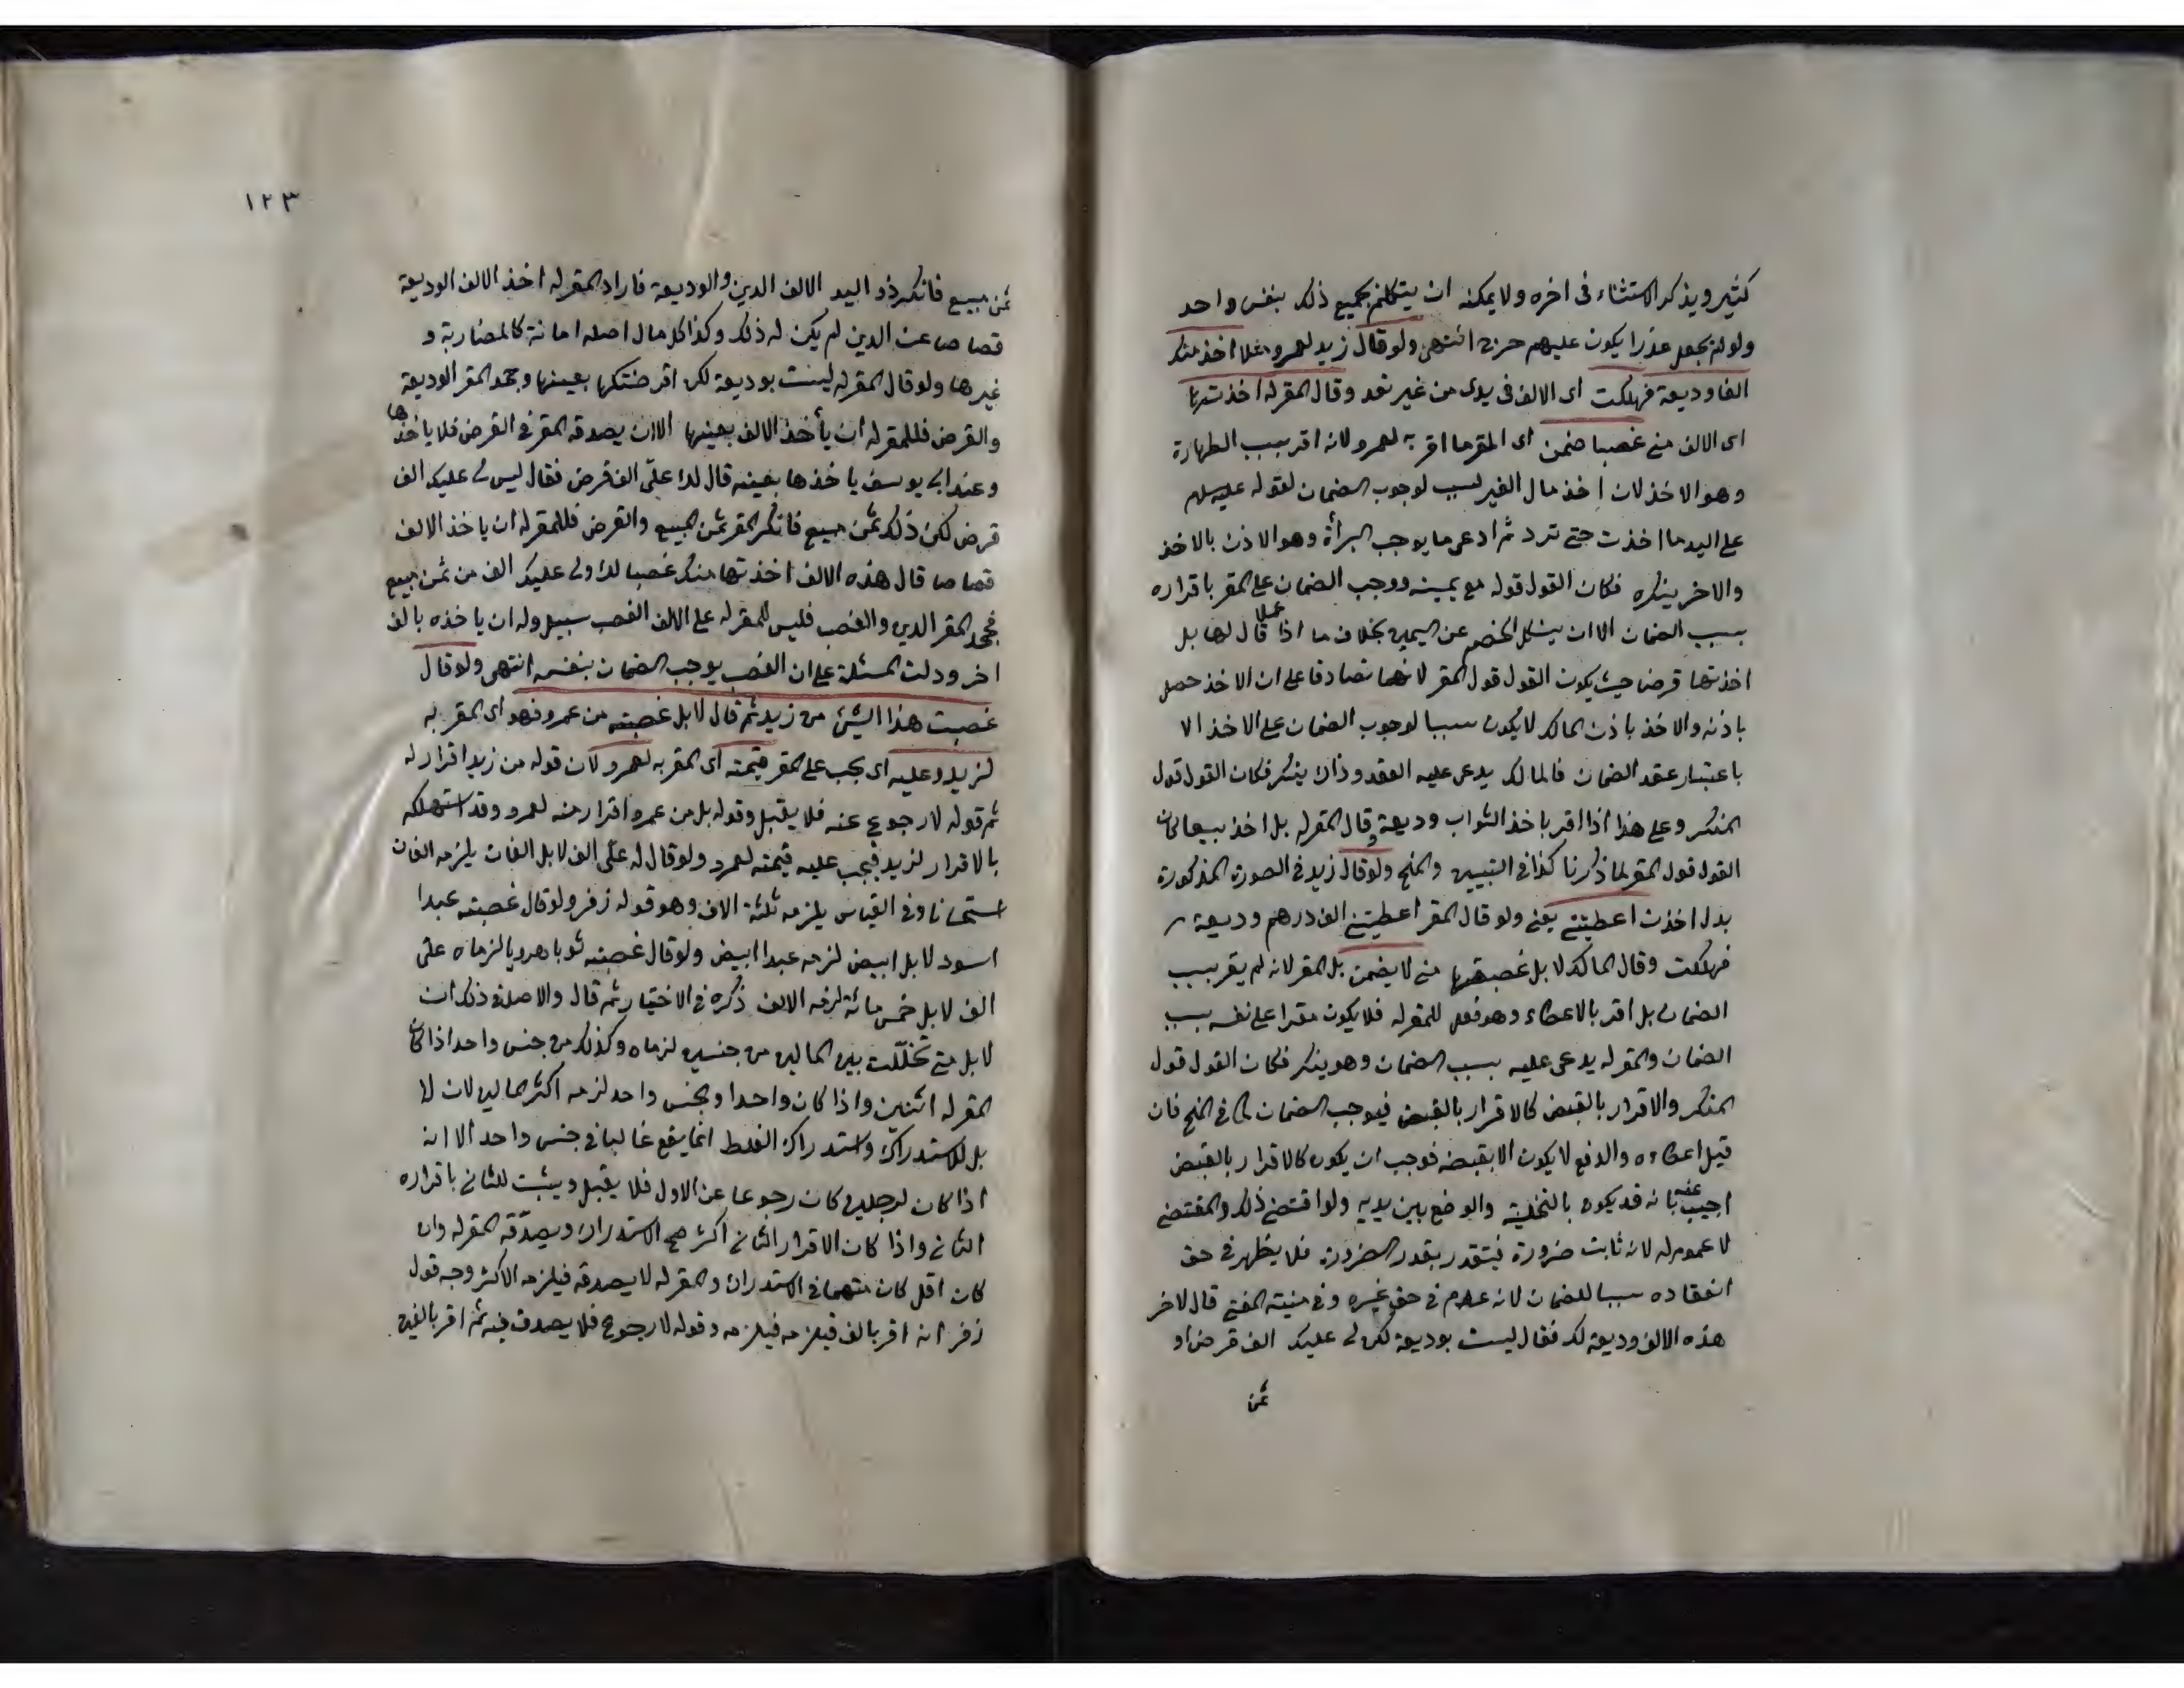 كثير ويذكر الاستثناء فى اخره ولا يمكنه ان يتكلم بجميع ذلك بنفس واحد
ولو لم يجعل عذرا يكون عليهم حرج انتهى ولو قال زيد لعمرو مثلا اخذ منك
الفا وديعة فهلكت اى الالف فى يدى من غير تعد وقال المقر له اخذتها
اى الالف منى غصبا ضمن اى المقر ما اقر به لعمرو لانه اقر بسبب
وهو الاخذ لان اخذ مال الغير سبب لوجوب الضمان لقوله عليه
على اليد ما اخذت حتى ترد ثم ادعى ما يوجب البرأة وهو الاذن بالاخذ
والاخر ينكره فكان القول قوله مع يمينه ووجب الضمان على المقر باقراره
بسبب الضمان الا ان ينكل الخصم عن اليمين بخلاف ما اذا قال لها بل
اخذتها قرضا حيث يكون القول قول المقر لانهما تصادقا على ان الاخذ حصل
باذنه والاخذ باذن المالك لا يكون سببا لوجوب الضمان على الاخذ الا
باعتبار عقد الضمان فالمالك يدعى عليه العقد وذاك ينكر فكان القول قول
المنكر وعلى هذا اذا اقر باخذ الثواب وديعة وقال المقر له بل اخذ بيعا كان
القول قول المقر لما ذكرنا كذا فى التبيين والمنح ولو قال زيد فى الصورة المذكورة
بدل اخذت اعطيتنى يعنى ولو قال المقر اعطيتنى الف درهم وديعة
فهلكت وقال المالك لا بل غصبتها منى لا يضمن بل المقر لانه لم يقر بسبب
الضمان بل اقر بالاعطاء وهو فعل المقر له فلا يكون مقرا على نفسه بسبب
الضمان والمقر له يدعى عليه بسبب الضمان وهو ينكر فكان القول قول
المنكر والاقرار بالقبض كالاقرار بالقبض فيوجب الضمان كما فى المنح فان
قيل اعطاءه والدفع لا يكون الا بقبضه فوجب ان يكون كالاقرار بالقبض
اجيب عنه بانه قد يكون بالتخلية والوضع بين يديه ولو اقتضى ذلك والمقتضى
لا عموم له لانه ثابت ضرورة فيتقدر بقدر الضرورة فلا يظهر فى حق
انعقاده سببا للضمان لانه عدم فى حق غيره وفى منية المفتى قال لاخر
هذه الالف وديعة لك فقال ليست بوديعة لكن لى عليك الف قرض او
ثمن
١٢٣
ثمن مبيع فانكر ذو اليد الالف الدين والوديعة فاراد المقر له اخذ الالف الوديعة
قصاصا عن الدين لم يكن له ذلك وكذا كل مال اصله امانة كالمضاربة و
غيرها ولو قال المقر له ليست بوديعة لكن اقرضتكها بعينها وجحد المقر الوديعة
والقرض فللمقر له ان يأخذ الالف بعينها الا ان يصدقه المقر فى القرض فلا ياخذها
وعند ابى يوسف ياخذها بعينه قال لك علىّ الف قرض فقال ليس لى عليك الف
قرض لكن ذلك ثمن مبيع فانكر المقر ثمن المبيع والقرض فللمقر له ان ياخذ الالف
قصاصا قال هذه الالف اخذتها منك غصبا لك ولى عليك الف من ثمن مبيع
فجحد المقر الدين والغصب فليس للمقر له على الالف الغصب سبيل وله ان ياخذه بالف
اخر ودلت المسئلة على ان الغصب يوجب الضمان بنفسه انتهى ولو قال
غصبت هذا الشئ من زيد ثم قال لا بل غصبته من عمرو فهو اى المقر به
لزيد وعليه اى يجب على المقر قيمته اى المقر به لعمرو لان قوله من زيد اقرار له
ثم قوله لا رجوع عنه فلا يقبل وقوله بل من عمرو اقرار منه لعمرو وقد استهلكه
بالاقرار لزيد فيجب عليه قيمته لعمرو ولو قال له علىّ الف لا بل الفان يلزمه الفان
استحسانا وفى القياس يلزمه ثلثة الاف وهو قول زفر ولو قال غصبته عبدا
اسود لا بل ابيض لزمه عبدا ابيض ولو قال غصبته ثوبا هرويا لزماه علىّ
الف لا بل خمس مائة لزمه الالف ذكره فى الاختيار ثم قال والاصل فى ذلك ان
لا بل متى تخللت بين المالين من جنسين لزماه وكذلك من جنس واحد اذا كان
المقر له اثنين واذا كان واحدا وبجنس واحد لزمه اكثر المالين لان لا
بل للاستدراك واستدراك الغلط انما يقع غالبا فى جنس واحد الا انه
اذا كان لرجلين كان رجوعا عن الاول فلا يقبل ويثبت للثانى باقراره
الثانى واذا كان الاقرار الثانى اكثر صح الاستدراك ويصدقه المقر له وان
كان اقل كان متهما فى الاستدراك والمقر له لا يصدقه فيلزمه الاكثر وجه قول
زفر انه اقر بالف فيلزمه فيلزمه وقوله لا رجوع فلا يصدق فيه ثم اقر بالفين